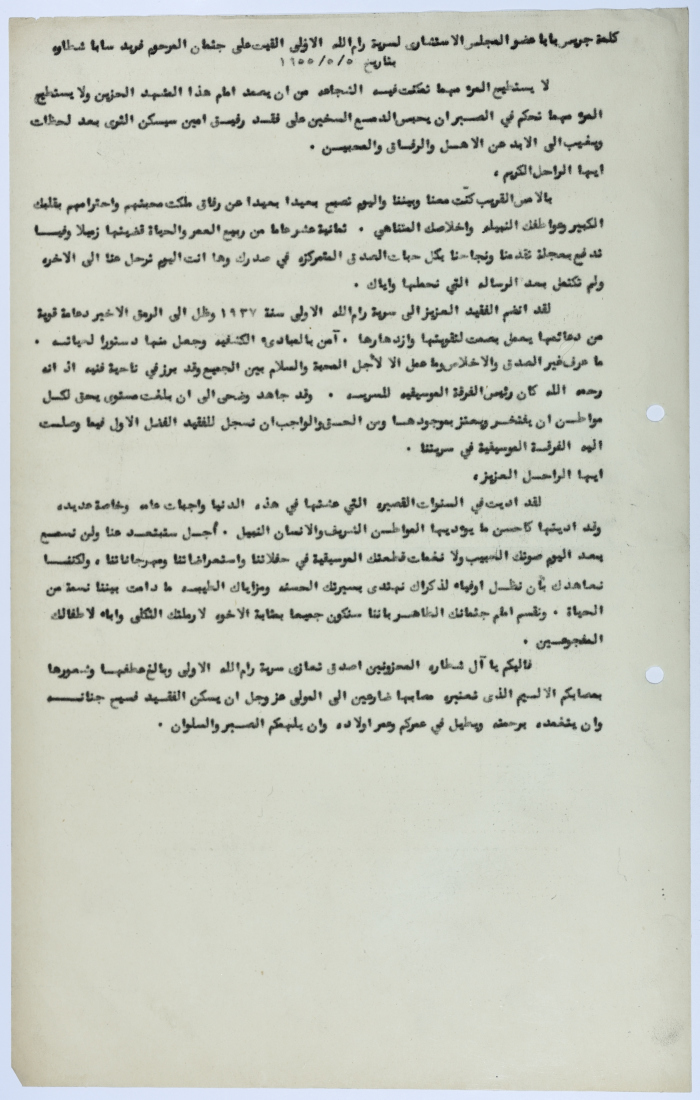 كلمة جريس بابا عضو المجلس الاستشارى لسرية رام الله الاولى القيت على جثمان المرحوم فريد سابا شطاره
بتاريخ ٥/٥/١٩٥٥
لا يستطيع المرء مهما تمكنت فيه الشجاعه من ان يصمد امام هذا المشهد الحزين ولا يستطيع
المرء مهما تحكم في الصبر ان يحبس الدمع السخين على فقد رفيق امين سيسكن الثرى بعد لحظات
ويغيب الى الابد عن الاهل والرفاق والمحبين ٠
ايها الراحل الكريم ،
بالامس القريب كنت معنا وبيننا واليوم تصبح بعيدا بعيدا عن رفاق ملكت محبتهم واحترامهم بقلبك
الكبير وعواطفك النبيله واخلاصك المتناهي ٠ ثمانية عشر عاما من ربيع العمر والحياة قضيتها زميلا وفيا
تدفع بعجلة تقدمنا ونجاحنا بكل حبات الصدق المتمركزه في صدرك وها انت اليوم ترحل عنا الى الاخره
ولم تكتمل بعد الرساله التي نحملها واياك ٠
لقد انضم الفقيد العزيز الى سرية رام الله الاولى سنة ١٩٣٧ وظل الى الرمق الاخير دعامة قوية
من دعائمها يعمل بصمت لتقويتها وازدهارها ٠ آمن بالمبادىء الكشفيه وجعل منها دستورا لحياته ٠
ما عرف غير الصدق والاخلاص وما عمل الا لأجل المحبة والسلام بين الجميع وقد برز في ناحية فنيه اذ انه
رحمه الله كان رئيس الفرقة الموسيقيه للسريه ٠ وقد جاهد وضحى الى ان بلغت مستوى يحق لكل
مواطن ان يفتخر ويعتز بموجودها ومن الحق والواجب ان نسجل للفقيد الفضل الاول فيما وصلت
اليه الفرقة الموسيقية في سريتنا ٠
ايها الراحل العزيز،
لقد اديت في السنوات القصيره التي عشتها في هذه الدنيا واجبات عامه وخاصة عديده
وقد اديتها كاحسن ما يؤديها المواطن الشريف والانسان النبيل ٠ أجل ستبتعد عنا ولن نسمع
بعد اليوم صوتك الحبيب ولا نغمات قطعتك الموسيقية في حفلاتنا واستعراضاتنا ومهرجاناتنا ، ولكننا
نعاهدك بأن نظل اوفياء لذكراك نهتدى بسيرتك الحسنه ومزاياك الطيبه ما دامت بيننا نسمة من
الحياة ٠ ونقسم امام جثمانك الطاهر باننا سنكون جميعا بمثابة الاخوه لارملتك الثكلى واباء لاطفالك
المفجوعين ٠
فاليكم يا آل شطاره المحزونين اصدق تعازى سرية رام الله الاولى وبالغ عطفها وشعورها
بمصابكم الاليم الذى تعتبره مصابها ضارعين الى المولى عز وجل ان يسكن الفقيد فسيح جنانه
وان يتغمده برحمته ويطيل في عمركم وعمر اولاده وان يلهمكم الصبر والسلوان ٠